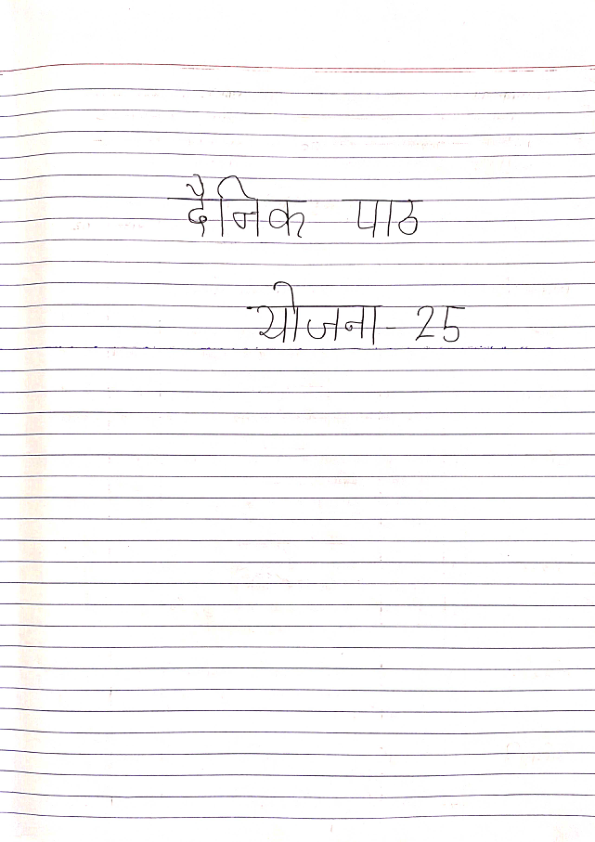 दैनिक पाठ
योजना - 25